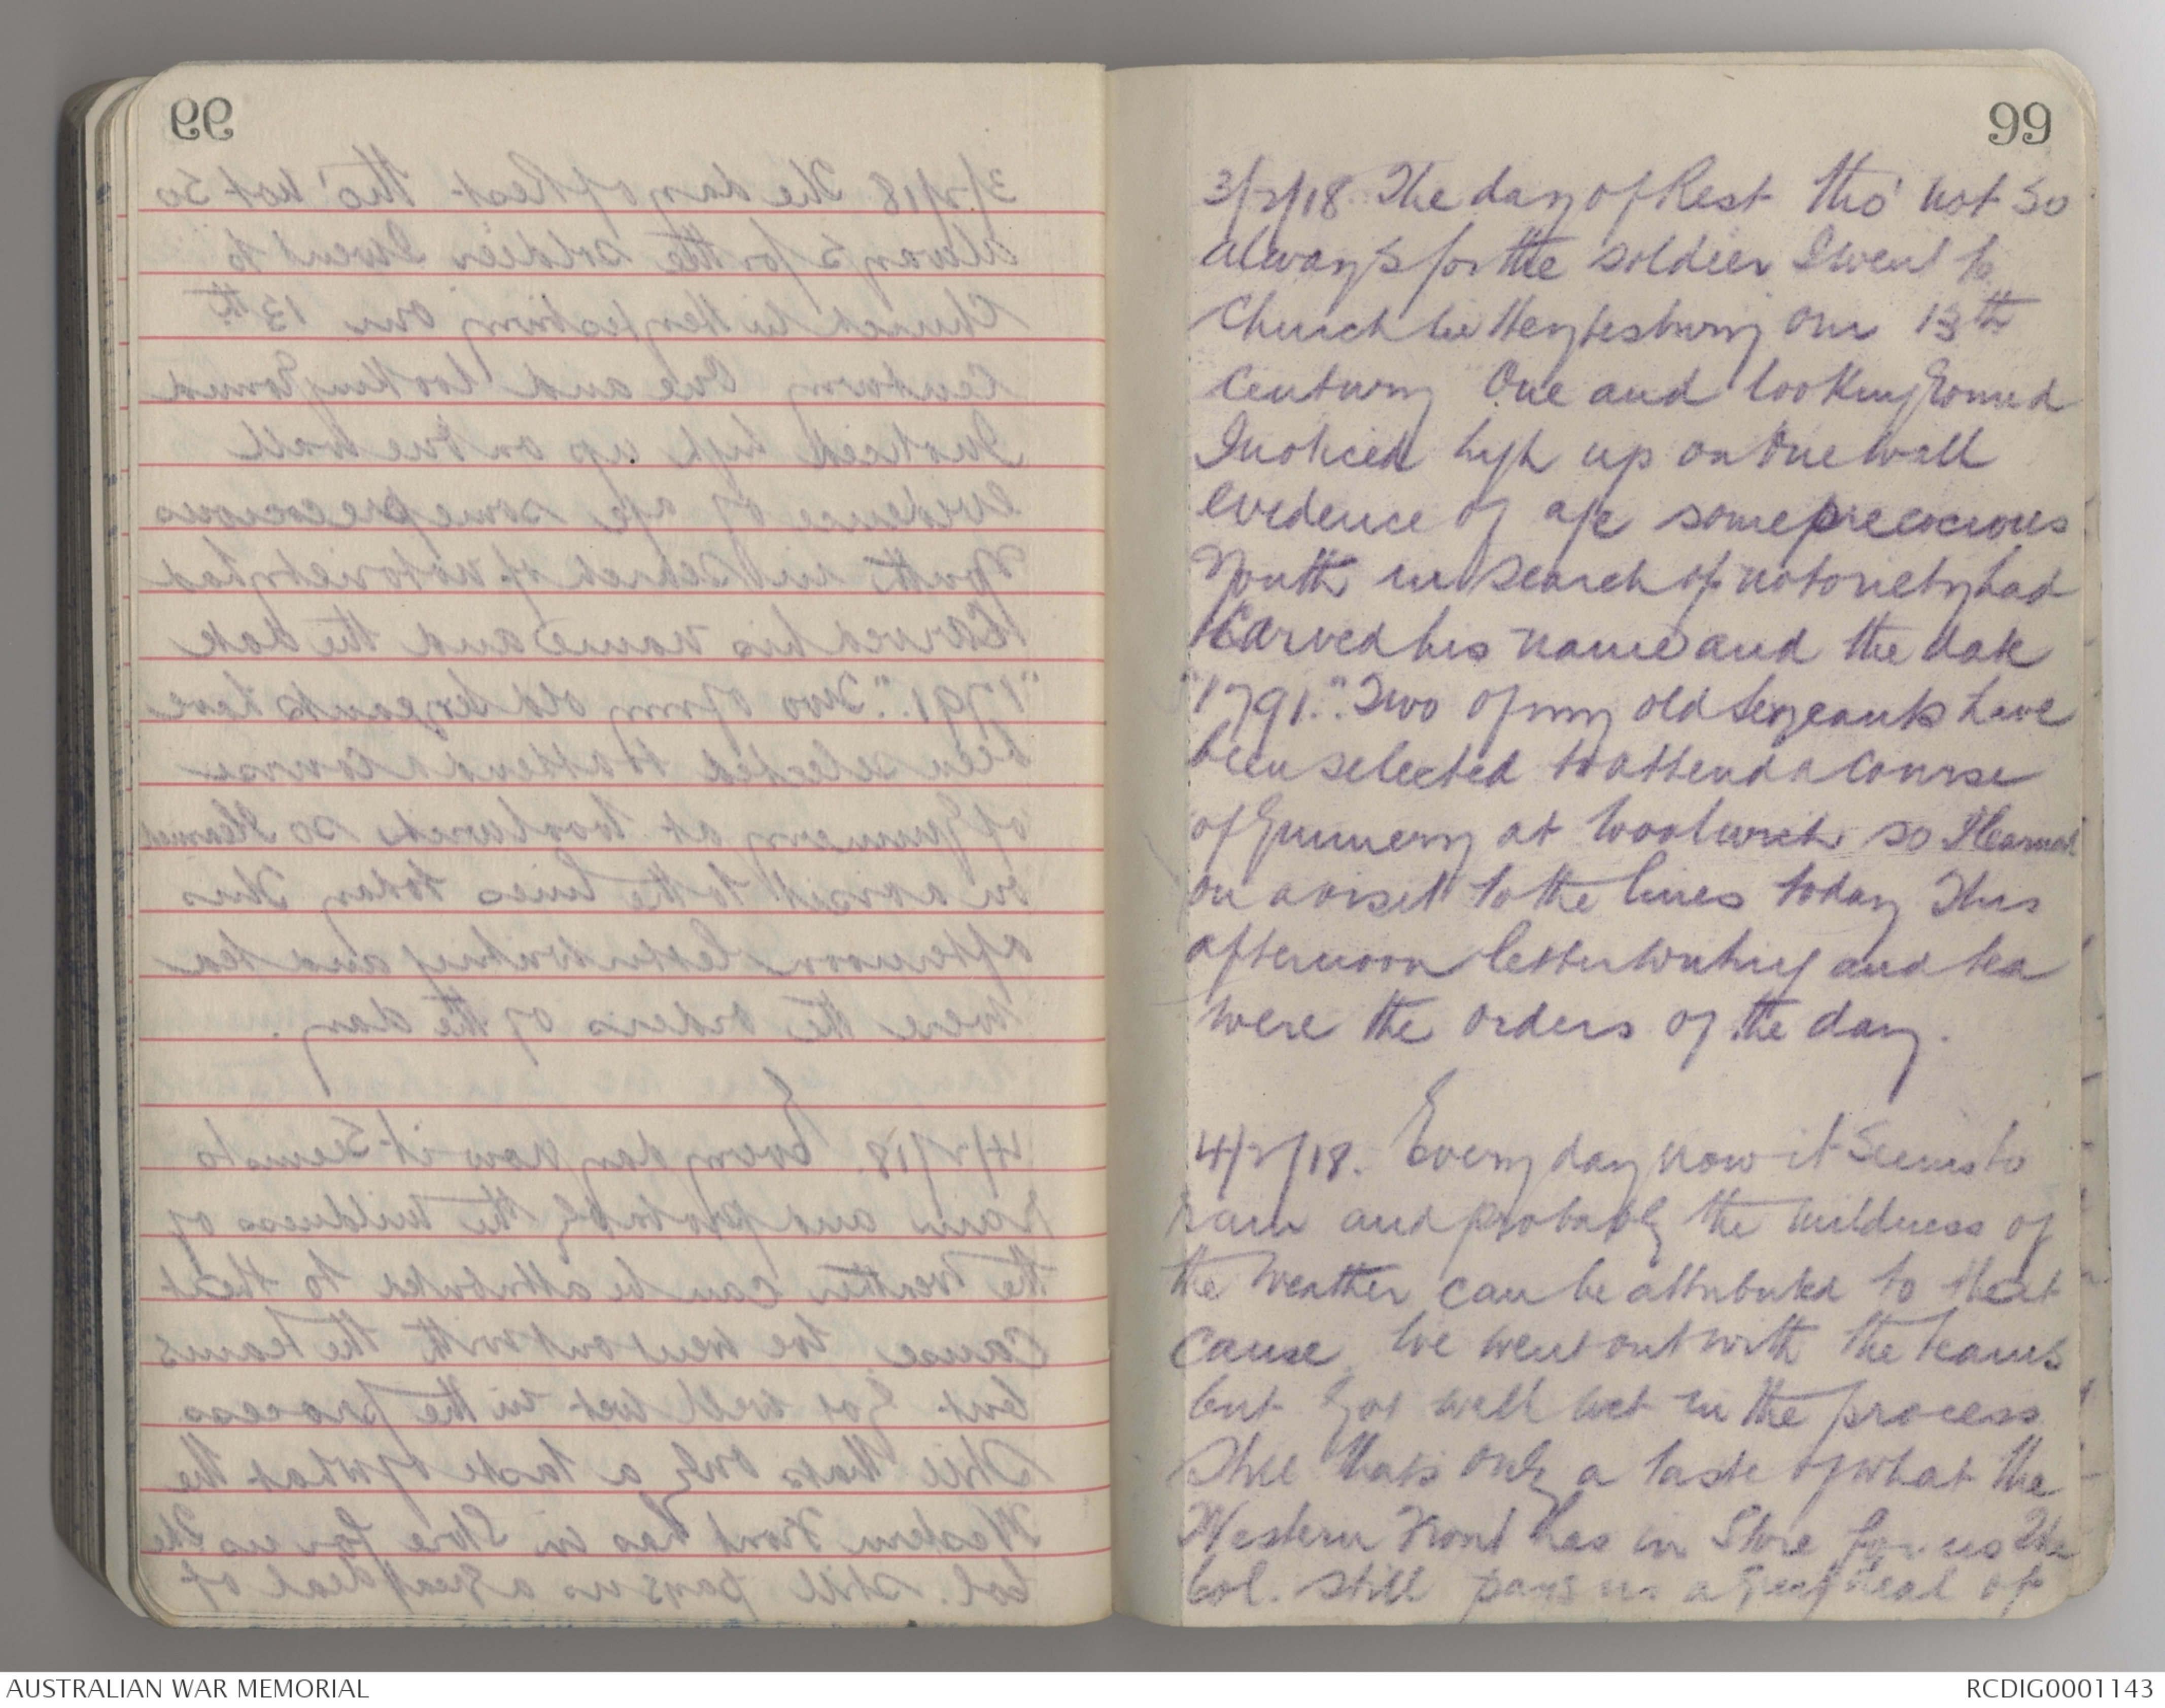 99
3/2/18. The day of Rest tho' not so
always for the soldier I went to
Church in Heytesbury our 13th
Century One and looking round
I noticed high up on One wall
evidence of age some precocious
Youth in search of notoriety had
Carved his name and the date
"1791.". Two of my old Sergeants have
been selected to attend a Course
of Gunnery at Woolwich so I learned
on a visit to the lines today This
afternoon letter writing and tea
were the orders of the day.
4/2/18. Every day now it seems to
rain and probably the mildness of
the weather can be attributed to that
Cause. We went out with the teams
but Got well wet in the process
Still thats only a taste of what the
Western Front has in Store for us The
Col. still pays us a great deal of
AUSTRALIAN WAR MEMORIAL
RCDIG0001143